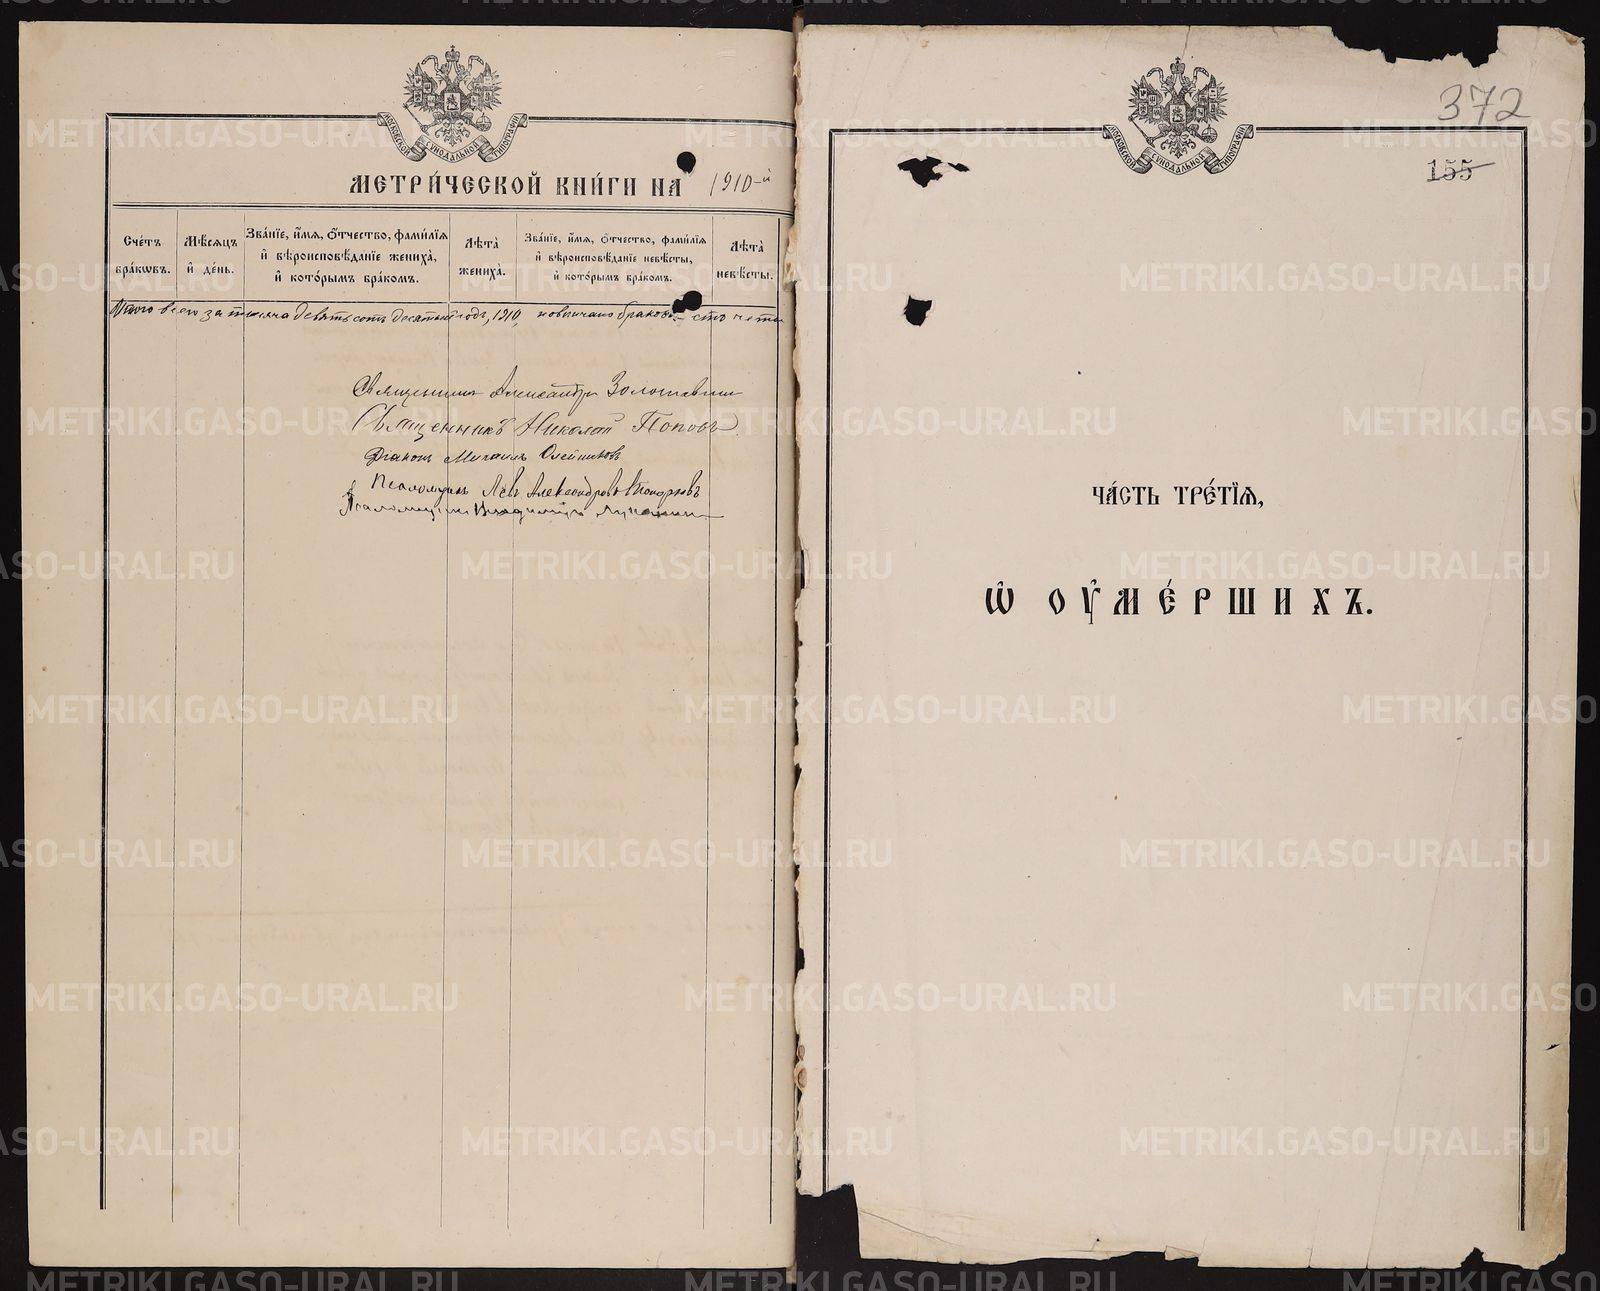 МОСКОВСКОЙ СѴНОДАЛЬНОЙ ТИПОГРАФІИ
МЕТРИ́ЧЕСКОЙ КНИ́ГИ НА 1910-й
Сче́тъ бра́кѡвъ.
Мѣ́сѧцъ и҆ де́нь.
Зва́нїе, и҆́мѧ, ѻ҆́тчество, фами́лїѧ и҆ вѣроисповѣ́данїе жениха̀, и҆ кото́рымъ бра́комъ.
Лѣта̀ жениха̀.
Зва́нїе, и҆́мѧ, ѻ҆́тчество, фами́лїѧ и҆ вѣроисповѣ́данїе невѣ́сты, и҆ кото́рымъ бра́комъ.
Лѣта̀ невѣ́сты.
Итого всего за тысяча девятьсотъ десятый годъ, 1910, повѣнчано браковъ – сто четы
Священникъ Александръ Золотавинъ
Священникъ Николай Поповъ
Діаконъ Михаилъ Олейниковъ
Псаломщикъ Левъ Александровъ
Псаломщикъ Владиміръ
МОСКОВСКОЙ СѴНОДАЛЬНОЙ ТИПОГРАФІИ
372
155
ЧА́СТЬ ТРЕ́ТЇѦ,
Ѡ҆ ОУ҆МЕ́РШИХЪ.
METRIKI.GASO-URAL.RU